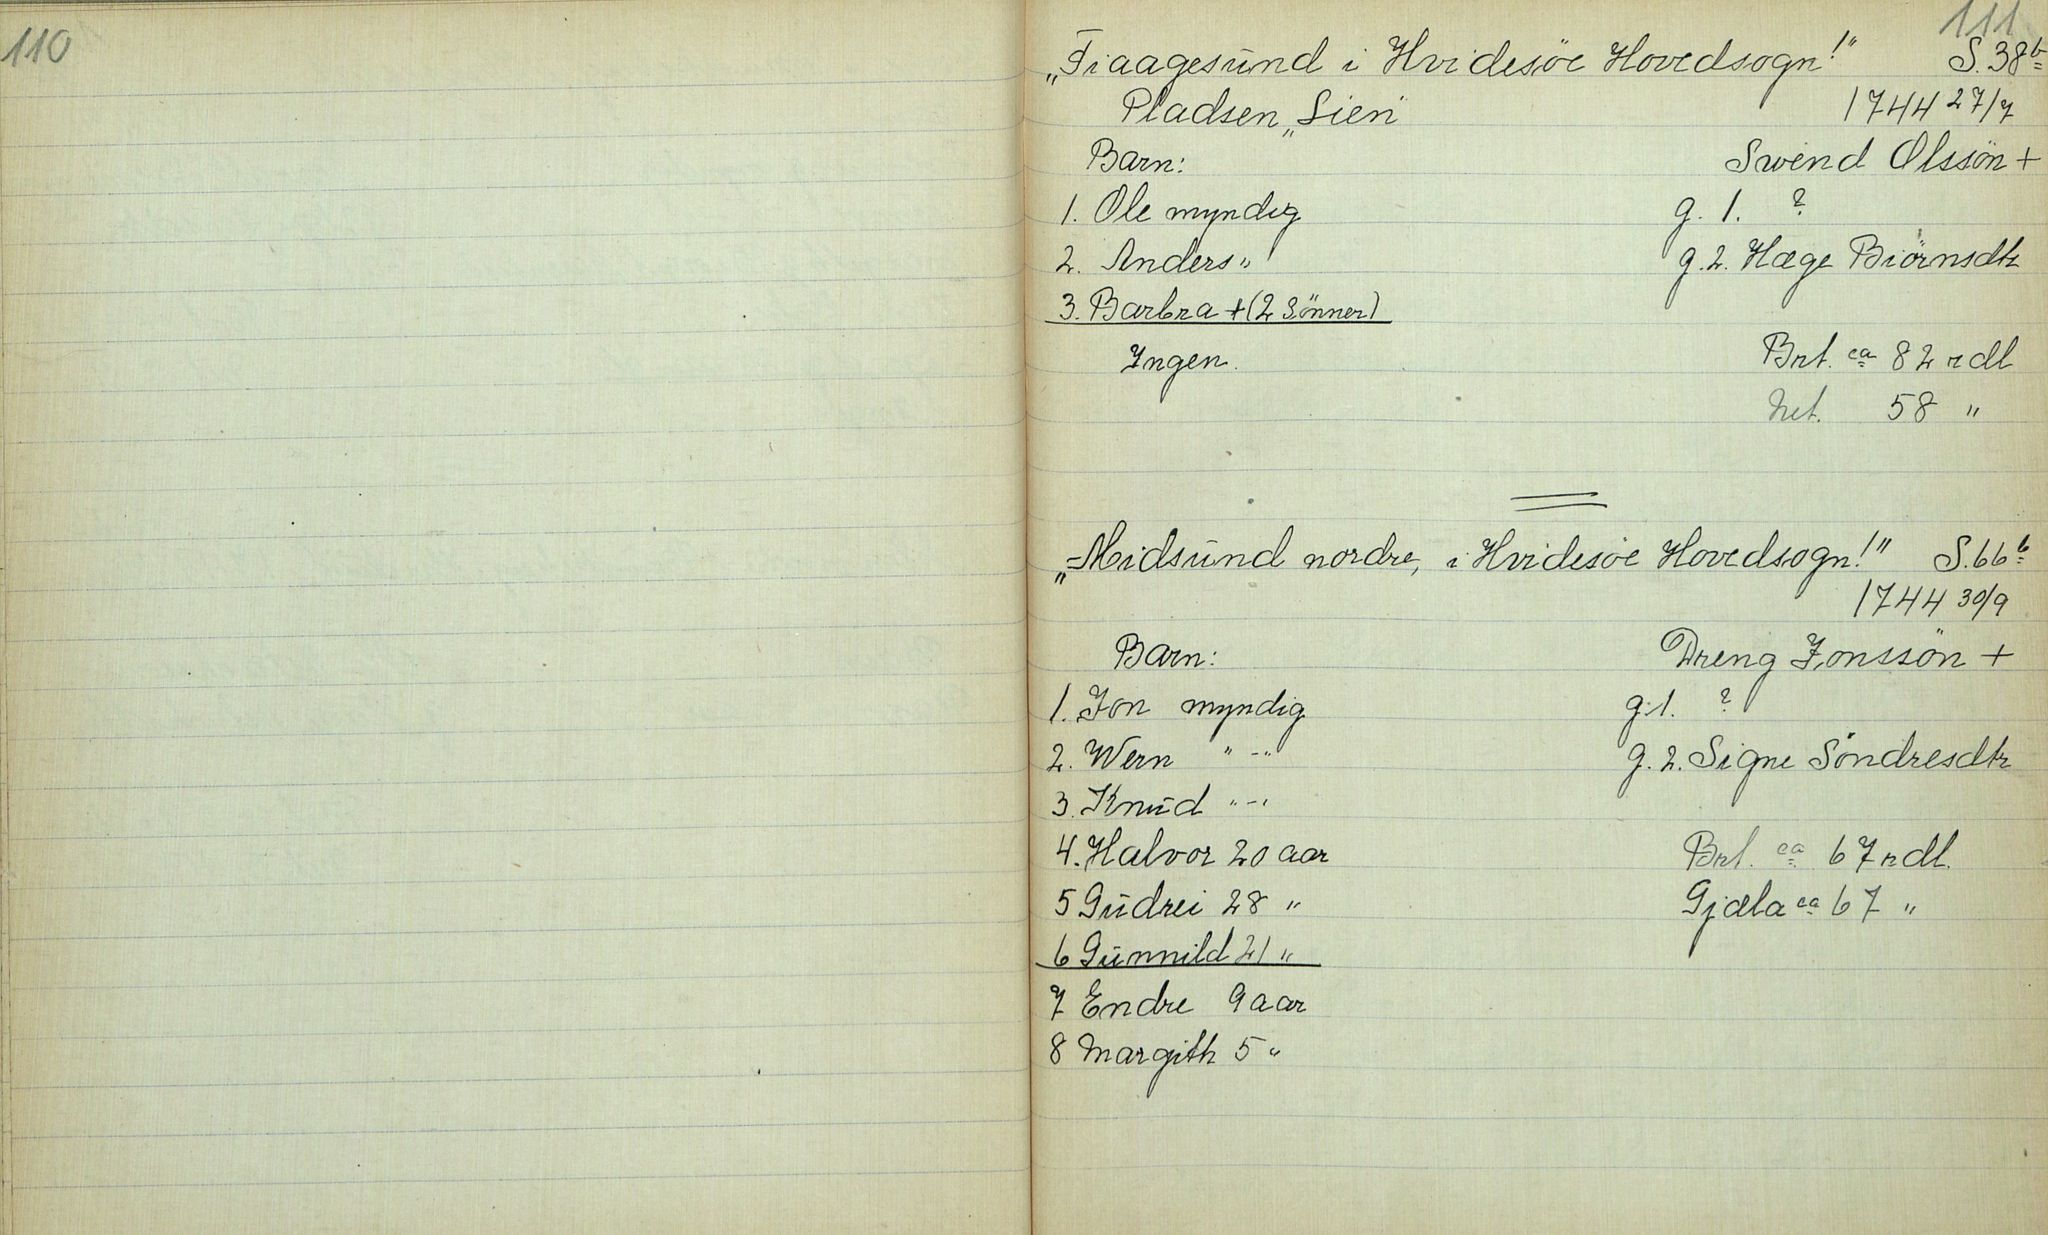 110
111
„Fiaagesund i Hvidesöe Hovedsogn!" S. 38b
Pladsen „Lien" 1744 27/7
Barn: Swend Olssön +
1. Ole myndig g. 1. ?
2. Anders " g. 2. Hæge Biörnsdtr
3. Barbra + (2 Sönner)
Ingen. Brt. ca 82 rdl
Net. 58 "
„Midsund nordre, i Hvidesöe Hovedsogn!" S. 66b
1744 30/9
Barn: Dreng Jonssön +
1. Jon myndig g. 1. ?
2. Wern "-" g. 2. Signe Söndresdtr
3. Knud "-"
4. Halvor 20 aar Brt. ca 67 rdl.
5 Gudrei 28 " Gjæla ca 67 "
6 Gunnild 21 "
7 Endre 9 aar
8 Margith 5 "